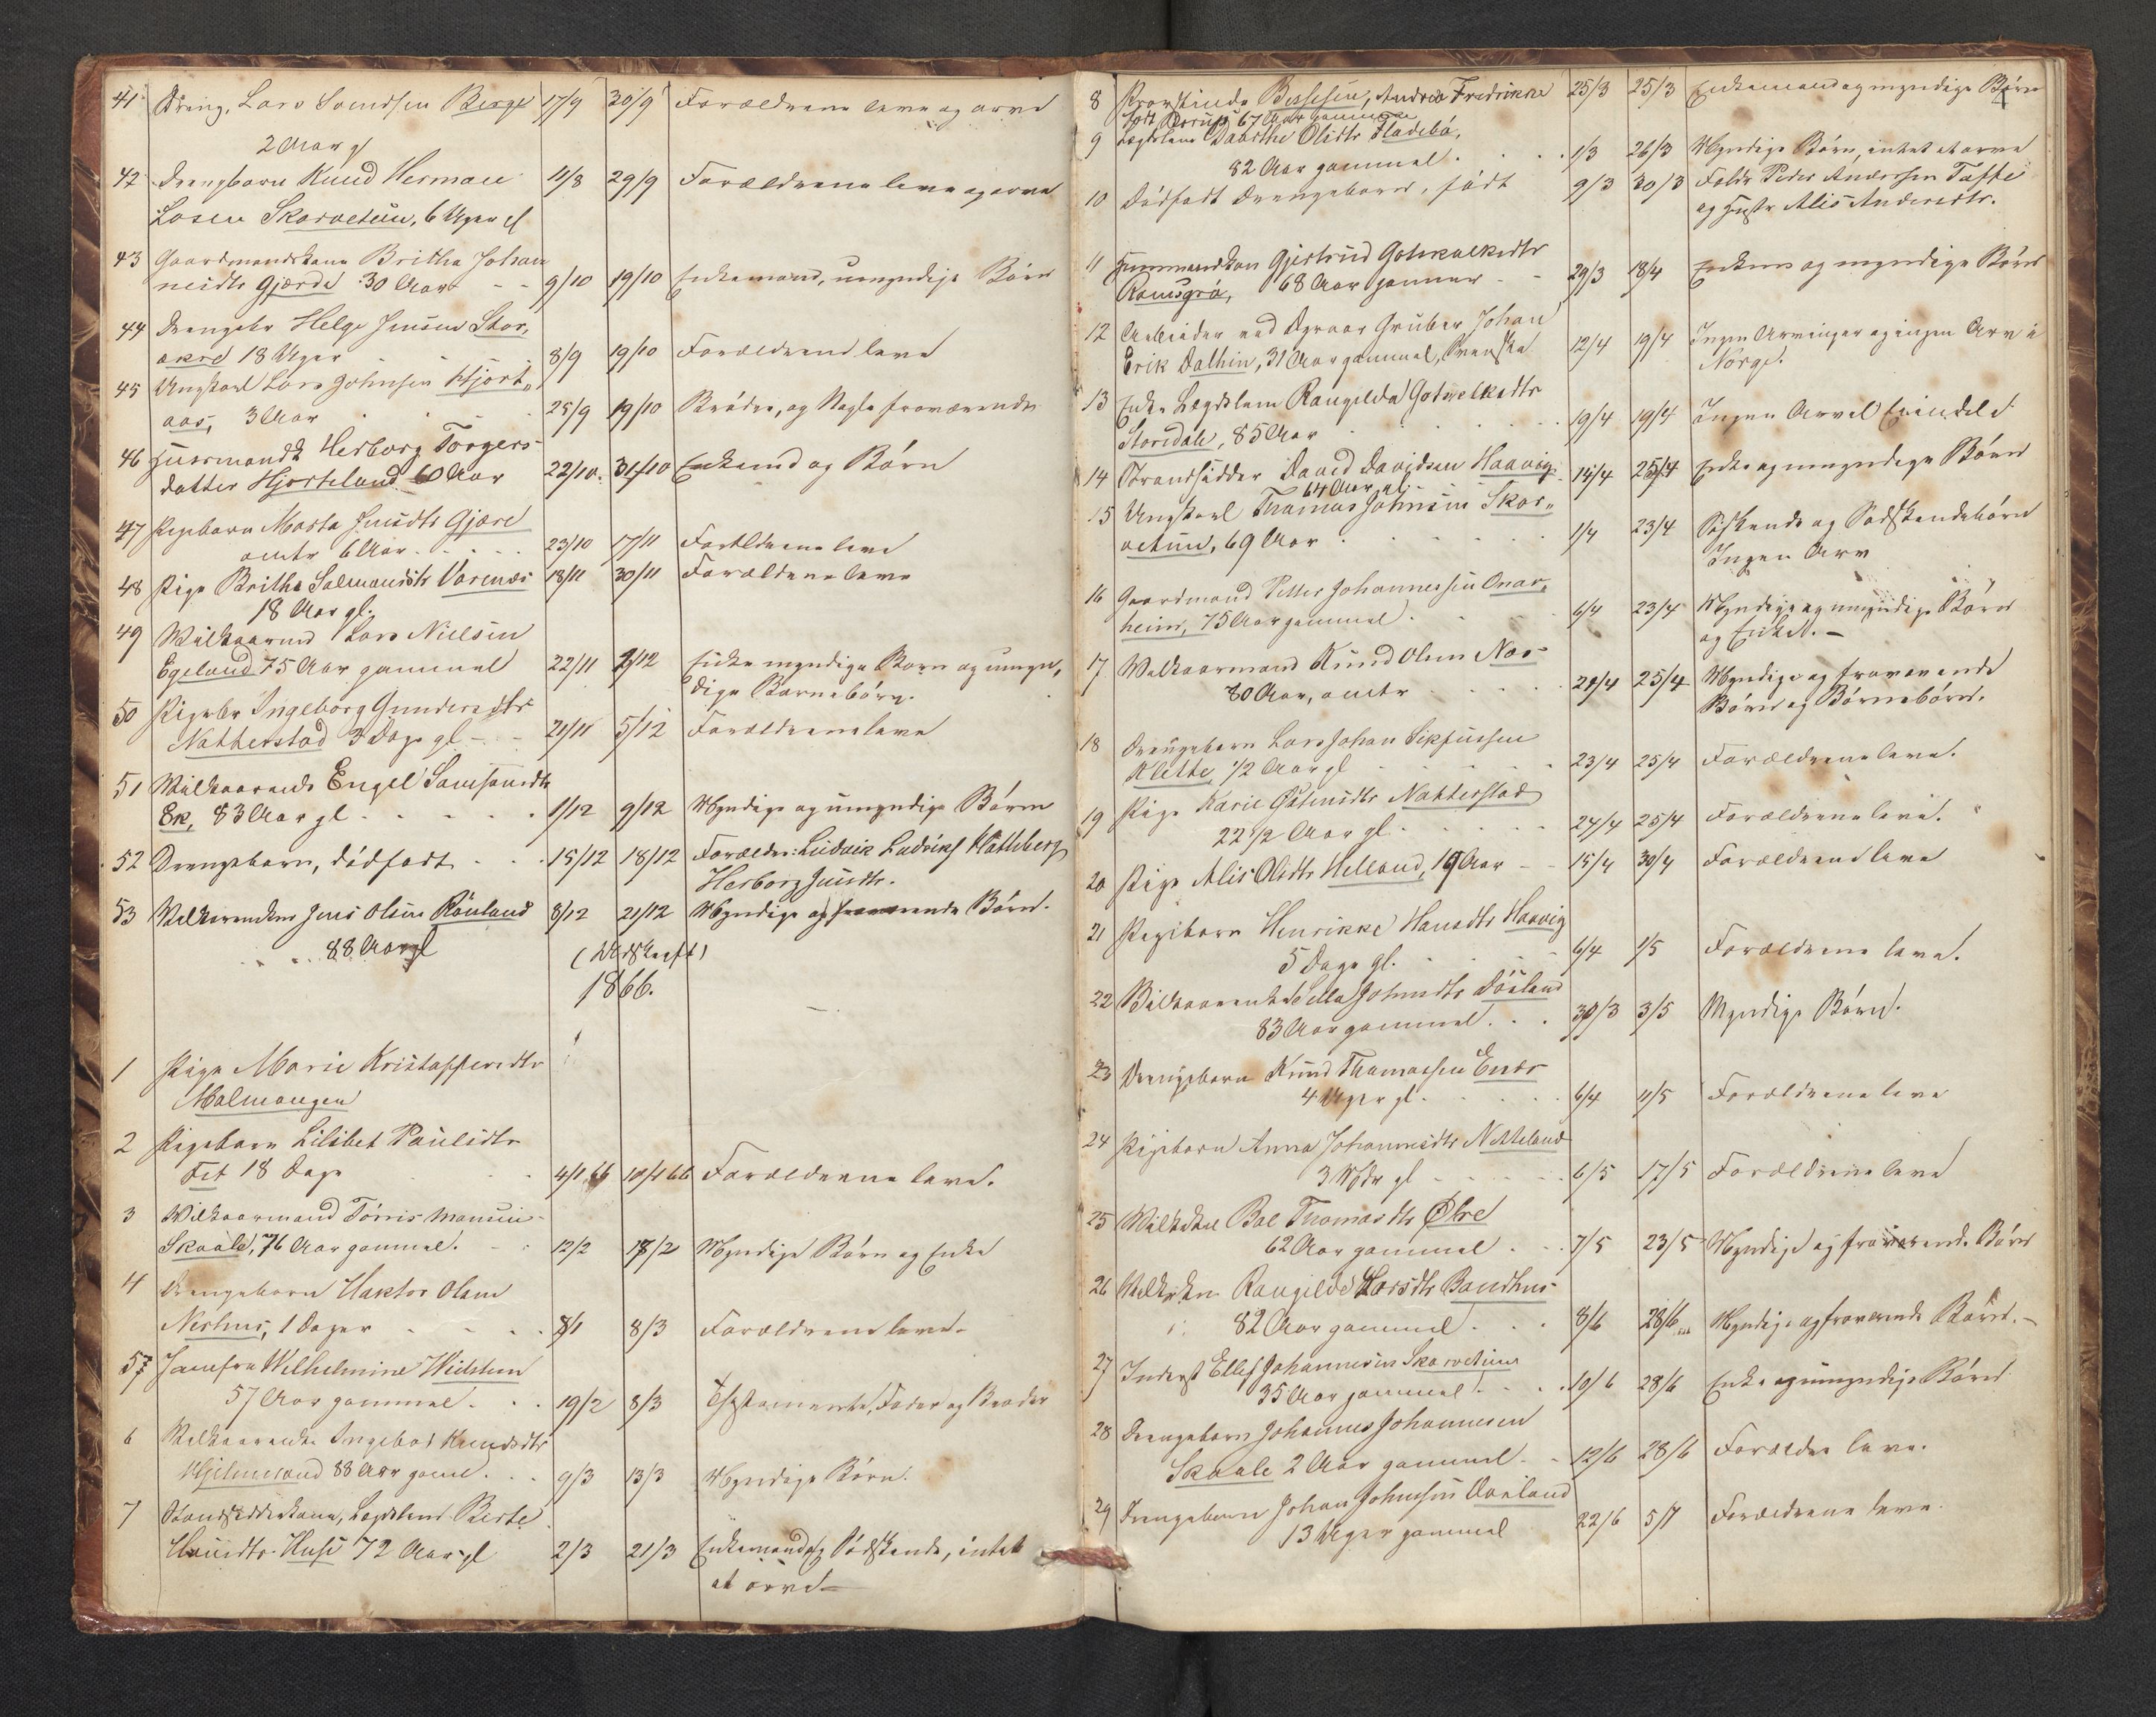 41 Dreng, Lars Svendsen Berge 17/9 30/9 Forældrene leve og arve
2 Aar gl
42 Drengbarn Knud Herman 11/8 29/9 Forældrene leve og arve
Larsen Skarvetun, 6 Uger gl
43 Gaardmandskone Britha Johan
nesdtr Gjerde 30 Aar - - 9/10 19/10 Enkemand, umyndige Børn
44 Drengebr Helge Jensen Stor,
akre 18 Uger 8/9 19/10 Forældrene leve
45 Ungkarl Lars Johnsen Hjort,,
aas, 3 Aar 25/9 19/10 Brødre, og Nogle fraværende
46 Huusmandk Herborg Torgers
datter Hjorteland 60 Aar 22/10. 31/10 Enkemd og Børn
47 Pigebarn Marta Jensdtr Gjære
omtr 6 Aar . . . . 23/10 17/11 Forældrene leve
48 Pige Britha Salmonsdtr Varenæs 18/11 30/11 Forældrene leve
18 Aar gl.
49 Wilkaarmd Lars Nielsen
Egeland 75 Aar gammel 22/11 2/12 Enke myndige Børn og umyn,
dige Barnebørn.
50 Pigebr Ingeborg Gundersdtr
Natherstad 3 Dage gl - - 21/11 5/12 Forældrene leve
51 Wilkaarenke Engel Samsonsdtr
Ek, 83 Aar gl . . . . . 1/12 9/12 Myndige og umyndige Børn
52 Drengebarn, dødfødt . . . 15/12 18/12 Forældre: Ludvik Ludviks Klathberg
Herborg Jensdtr.
53 Wilkaarenkem Jens Olsen Rönland 8/12 21/12 Myndige og fraværende Børn.
88 Aar gl
1866.
1 Pige Marie Kristoffersdtr
Malmangen
2 Pigebarn Lisbet Paulsdtr
Fet 18 Dage 4/1 66 10/1 66 Forældrene leve.
3 Wilkaarmand Törris Monsen
Skaale, 76 Aar gammel. 12/2 18/2 Myndige Børn og Enke
4 Drengebarn Haktor Olsen
Neshus, 1 Dager - - - 8/1 8/3 Forældrene leve -
5 Jomfru Wilhelmine Weidstun
57 Aar gammel . . . 19/2 8/3 Testamente, Fader og Broder
6 Wilkaarenke Ingebor Knudsdtr
Hjelmeland 88 Aar gaml . . . 9/3 13/3 Myndige Børn.
7 Strandsidderkone, Lægdslem Berte
Hansdtr Huse 72 Aar gl 2/3 21/3 Enkemand og Sødskende, intet
at arve -
8 Provstinde Bessesen, Andrea Fredrikke 25/3 25/3 Enkemand og myndige Børn
født 67 Aar gammel
9 Lægdslem Daarthe Olsdtr Fladebö,
82 Aar gammel . . . 1/3 26/3 Myndige Børn, intet at arve
10 Dødfødt Drengebarn, født 9/3 30/3 Foldr Peder Andersen Toffte
og Hustr Alis Andersdtr.
11 Huusmandskon Gjertrud Gotskalksdtr
Ramsgrö, 68 Aar gammel - - 29/3 18/4 Enkem og myndige Børn
12 Arbeider ved Ograar Gruber Johan
Erik Dalhin, 31 Aar gammel, Svenske 12/4 19/4 Ingen Arvinger og ingen Arv i
Norge.
13 Enke Lægdslem Rangilda Gotskalksdtr
Storedale, 85 Aar 19/4 19/4 Ingen Arvel Eiendele
14 Strandsidder David Davidsen Haavig 14/4 25/4 Enke og umyndige Børn
64 Aar gl.
15 Ungkarl Thomas Johnsen Skar,,
vetun, 69 Aar . . . . . . 1/4 23/4 Søskende og Sødskendebørn
Ingen Arv
16 Gaardmand Petter Johannessen Onar,
heim, 75 Aar gammel . . . 6/4 23/4 Myndige og umyndige Børn
og Enke. -
17 Wilkaarmand Knud Olsen Nas
80 Aar, omtr . . . . . 21/4 25/4 Myndige og fraværende
Børn og Børnebørn.
18 Drengebarn Lars Johan Sikfussen
Klette, 1/2 Aar gl . . . . . 23/4 25/4 Forældrene leve.
19 Pige Karie Östensdtr Natterstad
22 1/2 Aar gl . . . . . 24/4 25/4 Forældrene leve.
20 Pige Alis Olsdtr Helland, 19 Aar - - 15/4 30/4 Forældrene leve
21 Pigebarn Henrikke Hansdtr Haavig
5 Dage gl. . . . . 6/4 1/5 Forældrene leve.
22 Wilkaarenke Sella Johnsdtr Döeland
83 Aar gammel . . . 30/3 3/5 Myndige Børn.
23 Drengebarn Knud Thomassen Enes
4 Uger gl . . . . . 6/4 11/5 Forældrene leve
24 Pigebarn Anna Johannesdtr Netteland
3 Mdr gl - - - - - 6/5 17/5 Forældrene leve
25 Wilkaarke Boe Thomasdtr Ölve
62 Aar gammel . . . 7/5 23/5 Myndige og fraværende Børn
26 Wilkaarken Rangilde Larsdtr Bondhus
82 Aar gammel . . . 8/6 28/6 Myndige og fraværende Børn. -
27 Inderst Ellef Johannesen Skarvetun
35 Aar gammel . . . 10/6 28/6 Enke og umyndige Børn
28 Drengebarn Johannes Johannesen
Skaale 2 Aar gammel - - 12/6 28/6 Forældre leve.
29 Drengebarn Johan Johnsen Aarland
13 Uger gammel 22/6 5/7 Forældrene leve.